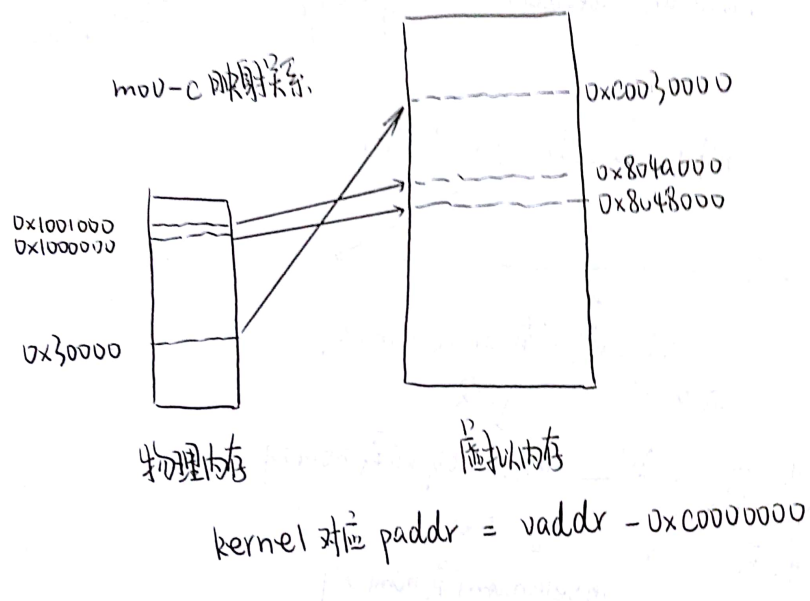 mov-c 映射关系
0xC0030000
0x804a000
0x8048000
0x1001000
0x1000000
0x30000
物理内存
虚拟内存
kernel 对应 paddr = vaddr - 0xC0000000